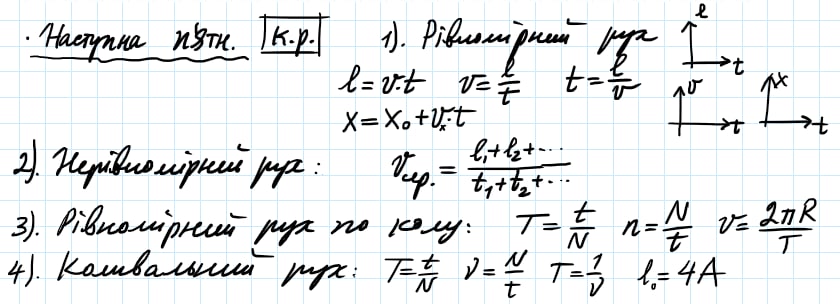 · Наступна п'ятн. К.р. 1). Рівномірний рух l t
l = v·t v = l/t t = l/v v t x t
x = x₀ + vₓ·t
2). Нерівномірний рух: v_сер. = (l₁ + l₂ + ···)/(t₁ + t₂ + ···)
3). Рівномірний рух по колу: T = t/N n = N/t v = 2πR/T
4). Коливальний рух: T = t/N ν = N/t T = 1/ν l₀ = 4A